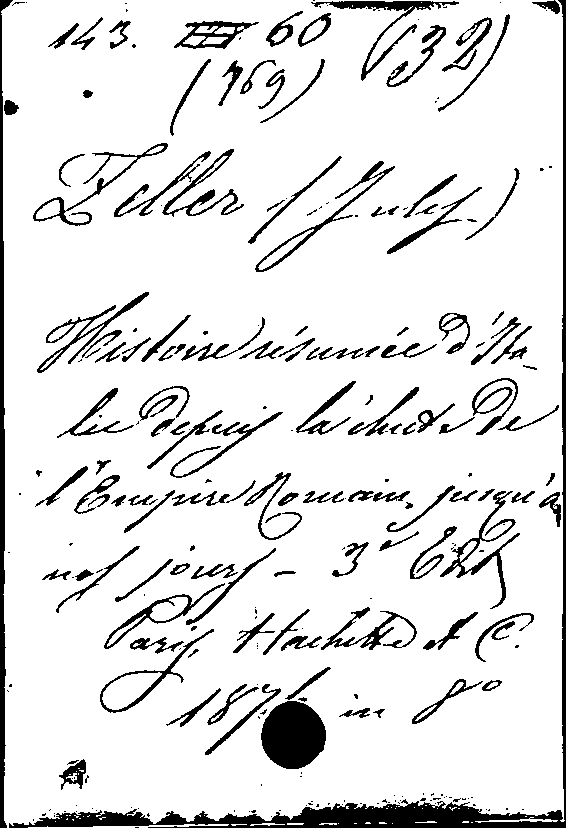 143. 60 (32)
(769)
Zeller (Jules)
Histoire résumée d'Ita-
lie depuis la chute de
l'Empire Romain, jusqu'à
nos jours - 3e Edit
Paris, Hachette et C.
in 8o